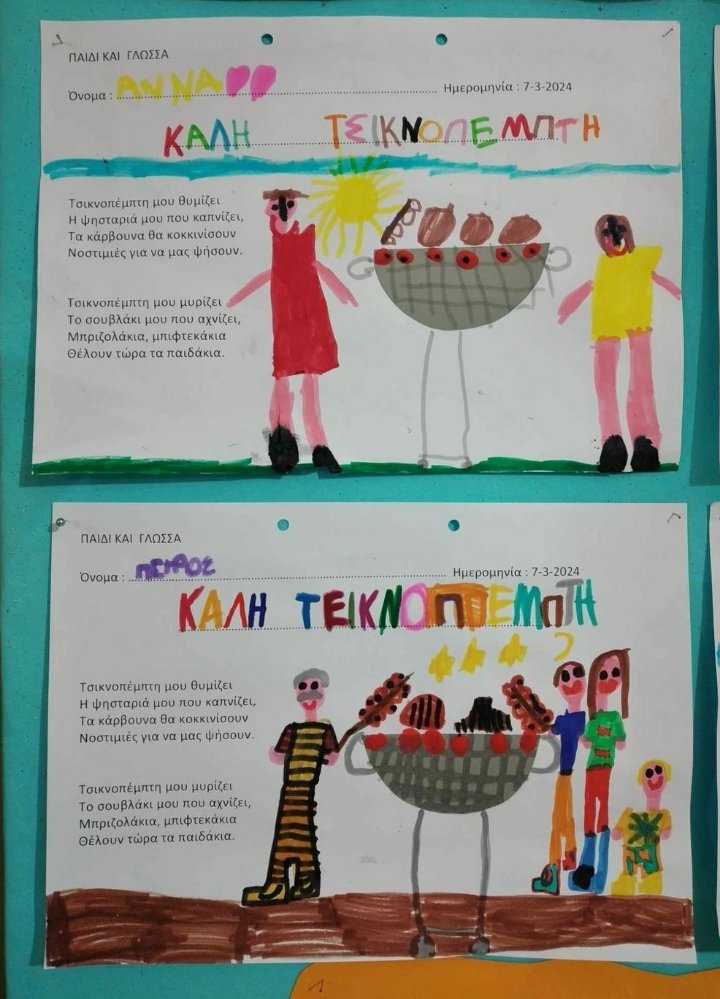 ΠΑΙΔΙ ΚΑΙ ΓΛΩΣΣΑ
Όνομα : ΑΝΝΑ Ημερομηνία : 7-3-2024
ΚΑΛΗ ΤΣΙΚΝΟΠΕΜΠΤΗ
Τσικνοπέμπτη μου θυμίζει
Η ψησταριά μου που καπνίζει,
Τα κάρβουνα θα κοκκινίσουν
Νοστιμιές για να μας ψήσουν.
Τσικνοπέμπτη μου μυρίζει
Το σουβλάκι μου που αχνίζει,
Μπριζολάκια, μπιφτεκάκια
Θέλουν τώρα τα παιδάκια.
ΠΑΙΔΙ ΚΑΙ ΓΛΩΣΣΑ
Όνομα : ΠΕΤΡΟΣ Ημερομηνία : 7-3-2024
ΚΑΛΗ ΤΣΙΚΝΟΠΕΜΠΤΗ
Τσικνοπέμπτη μου θυμίζει
Η ψησταριά μου που καπνίζει,
Τα κάρβουνα θα κοκκινίσουν
Νοστιμιές για να μας ψήσουν.
Τσικνοπέμπτη μου μυρίζει
Το σουβλάκι μου που αχνίζει,
Μπριζολάκια, μπιφτεκάκια
Θέλουν τώρα τα παιδάκια.